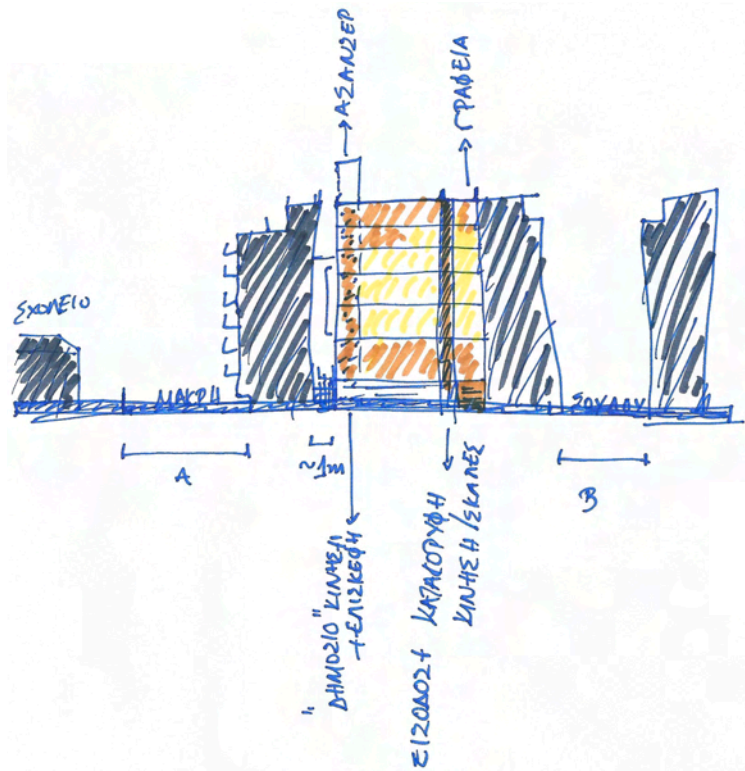 ΑΣΑΝΣΕΡ
ΓΡΑΦΕΙΑ
ΣΧΟΛΕΙΟ
ΜΑΚΡΗ
ΣΟΥΛΙΟΥ
A
~1m
B
"ΔΗΜΟΣΙΟ" ΚΙΝΗΣΗ
+ΕΠΙΣΚΕΨΗ
ΕΙΣΟΔΟΣ+ ΚΑΤΑΚΟΡΥΦΗ
ΚΙΝΗΣΗ/ΣΚΑΛΕΣ